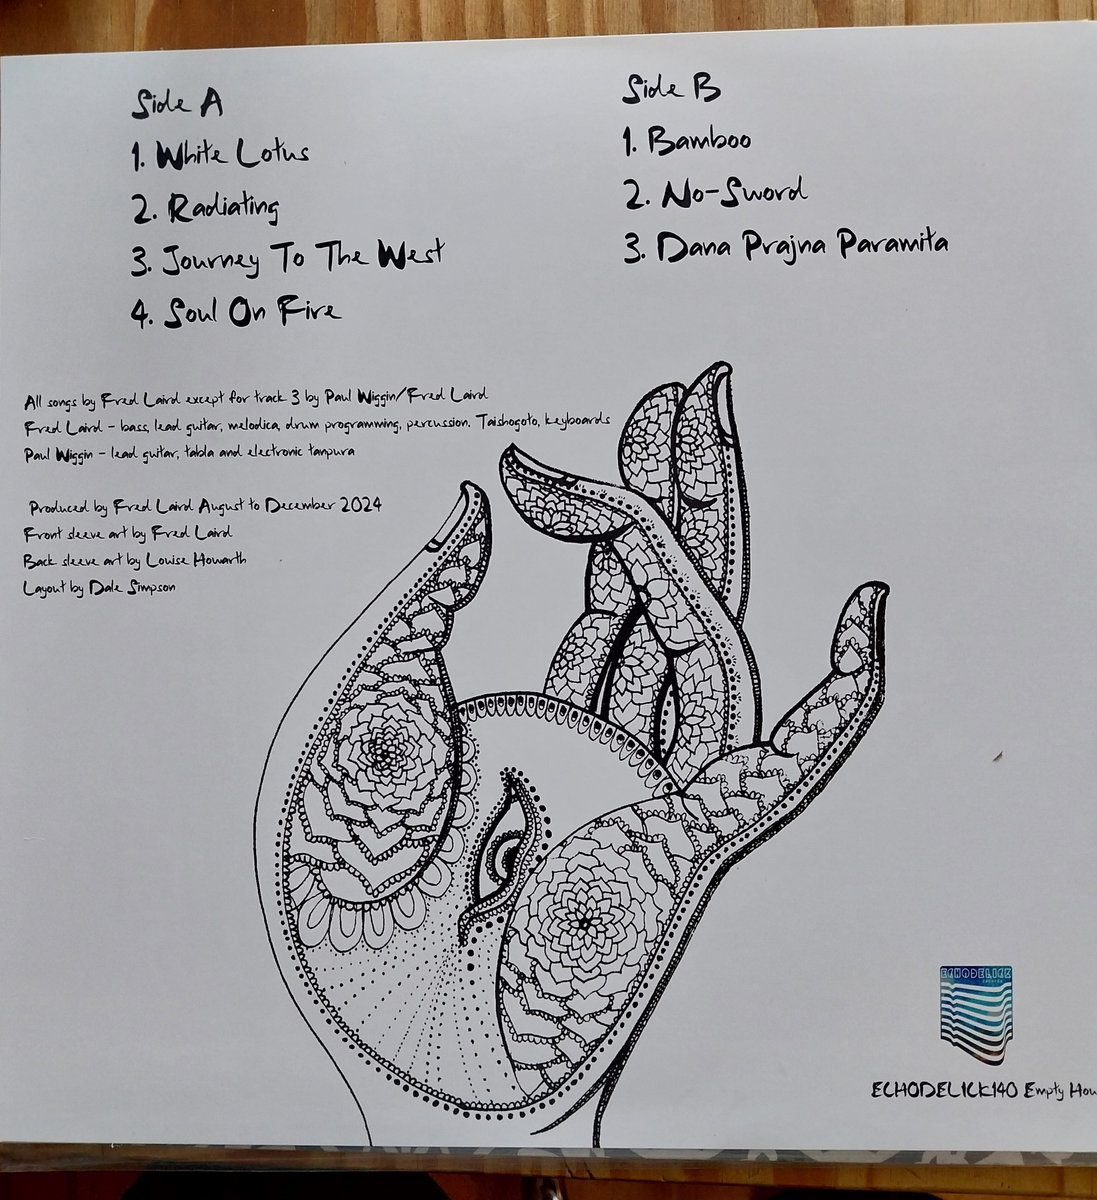 Side A
1. White Lotus
2. Radiating
3. Journey To The West
4. Soul On Fire
Side B
1. Bamboo
2. No-Sword
3. Dana Prajna Paramita
All songs by Fred Laird except for track 3 by Paul Wiggin/Fred Laird
Fred Laird - bass, lead guitar, melodica, drum programming, percussion. Taishogoto, keyboards
Paul Wiggin - lead guitar, tabla and electronic tanpura
Produced by Fred Laird August to December 2024
Front sleeve art by Fred Laird
Back sleeve art by Louise Howarth
Layout by Dale Simpson
ECHODELICK
RECORDS
ECHODELICK140 Empty Hou